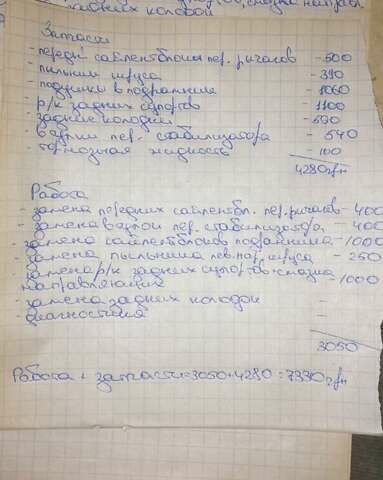 задних колодок
Запчасти
- передн сайлентблоки пер. рычагов -500
- пыльник шруса -390
- подушки в подрамник -1060
- р/к задних суппортов -1100
- задние колодки -590
- втулки пер. стабилизатора - 540
- тормозная жидкость - 100
4280грн
Работа
- замена передних сайлентбл. пер. рычагов - 400
- замена втулок пер. стабилизатора - 400
- замена сайлентблоков подрамника - 1000
- замена пыльника лев. нар. шруса - 250
- замена р/к задних суппортов + смазка
направляющих - 1000
- замена задних колодок -
- диагностика -
3050
Работа + запчасти = 3050 + 4280 = 7330грн